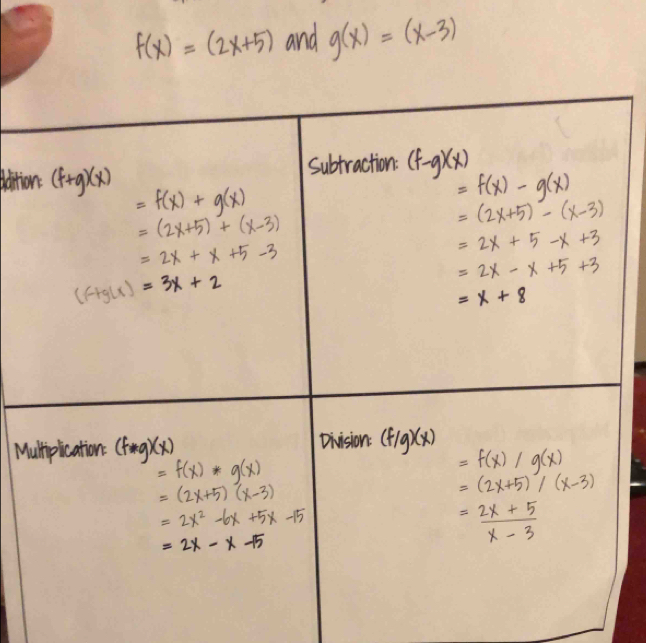 f(x) = (2x+5) and g(x) = (x-3)
ddition: (f+g)(x)
= f(x) + g(x)
= (2x+5) + (x-3)
= 2x + x +5 -3
(f+g(x) = 3x + 2
Subtraction: (f-g)(x)
= f(x) - g(x)
= (2x+5) - (x-3)
= 2x + 5 -x +3
= 2x - x +5 +3
= x + 8
Multiplication: (f*g)(x)
= f(x) * g(x)
= (2x+5) (x-3)
= 2x² -6x +5x -15
= 2x - x -15
Division: (f/g)(x)
= f(x) / g(x)
= (2x+5) / (x-3)
= 2x + 5
x - 3